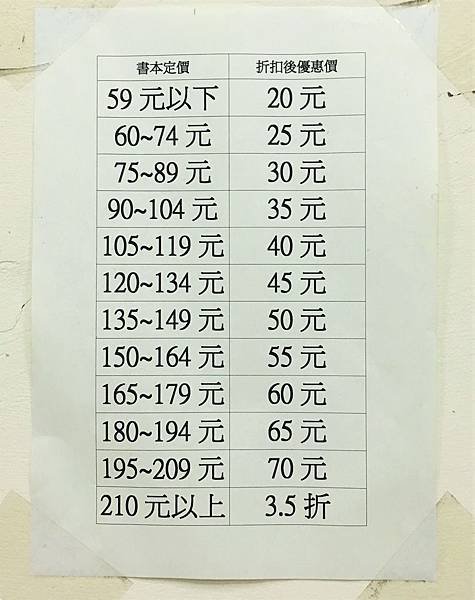 書本定價 折扣後優惠價
59 元以下 20 元
60~74 元 25 元
75~89 元 30 元
90~104 元 35 元
105~119 元 40 元
120~134 元 45 元
135~149 元 50 元
150~164 元 55 元
165~179 元 60 元
180~194 元 65 元
195~209 元 70 元
210 元以上 3.5 折